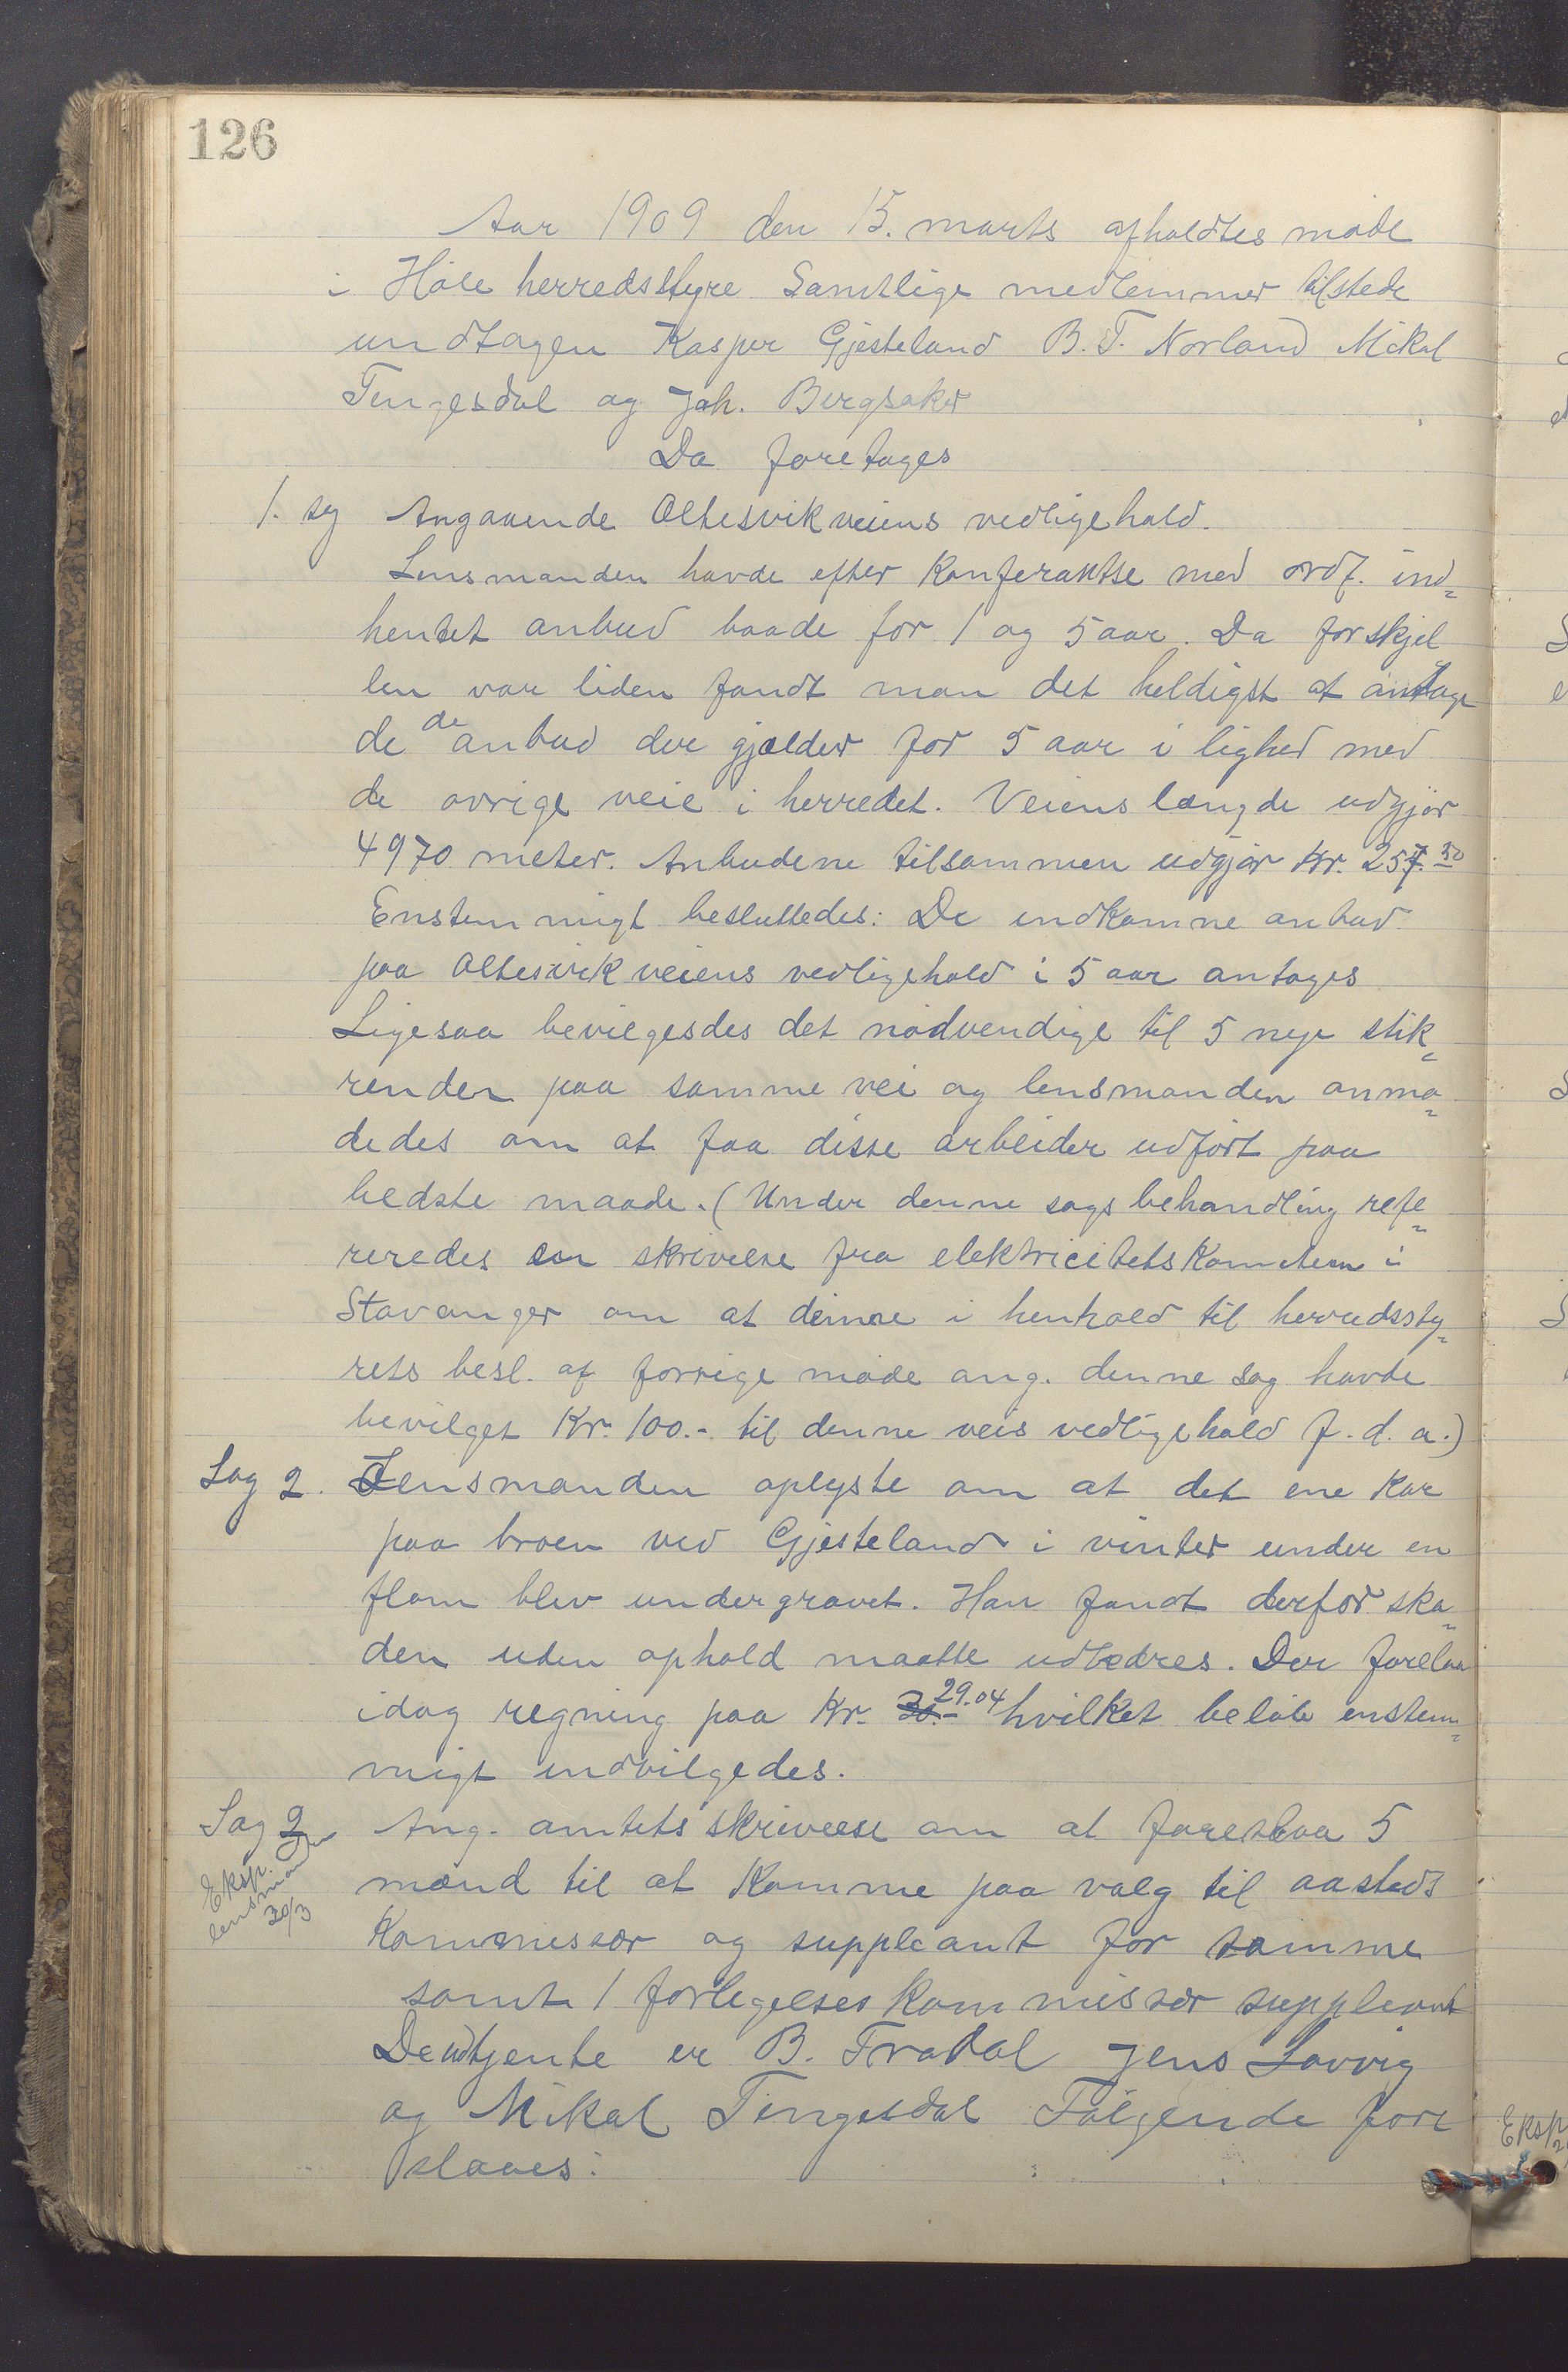 126
Aar 1909 den 15. marts afholdtes møde
i Høle herredsstyre Samtlige medlemmer tilstede
undtagen Kasper Gjesteland B. T. Norland Mikal
Tengesdal og Joh. Bergsaker
Da foretages
1. sg Angaaende Oltesvikveiens vedligehold.
Lensmanden havde efter Konferantse med ordf. ind-
hentet anbud baade for 1 og 5 aar. Da forskjel
len var liden fandt man det heldigst at antage
de de anbud der gjælder for 5 aar i lighed med
de øvrige veie i herredet. Veiens længde udgjør
4970 meter. Anbudene tilsammen udgjør Kr. 257.50
Enstemmigt besluttedes: De indkomne anbud
paa Oltesvikveiens vedligehold i 5 aar antages
Ligesaa bevilgesdes det nødvendige til 5 nye stik-
render paa samme vei og lensmanden anmo-
dedes om at faa disse arbeider udført paa
bedste maade. (Under denne sags behandling refe-
reredes en skrivelse fra elektricitetskomiteen i
Stavanger om at denne i henhold til herredssty-
rets besl. af forrige møde ang. denne sag havde
bevilget Kr. 100.- til denne veis vedligehold f. d. a.)
Sag 2. Lensmanden oplyste om at det ene Kar
paa broen ved Gjesteland i vinter under en
flom blev undergravet. Han fandt derfor ska-
den uden ophold maatte udbedres. Der forelaa
idag regning paa Kr. 30.- 29.04 hvilket beløb enstem-
migt indvilgedes.
Sag 2 Ang. amtets skrivelse om at foreslaa 5
Eksp.
lensman
30/3
mænd til at Komme paa valg til aasteds
Kommissær og suppleant for samme
samt 1 forlegelses Kommissær suppleant
De udtjente er B. Fradal Jens Lovvig
og Mikal Tengesdal Følgende fore
slaaes:
Eksp